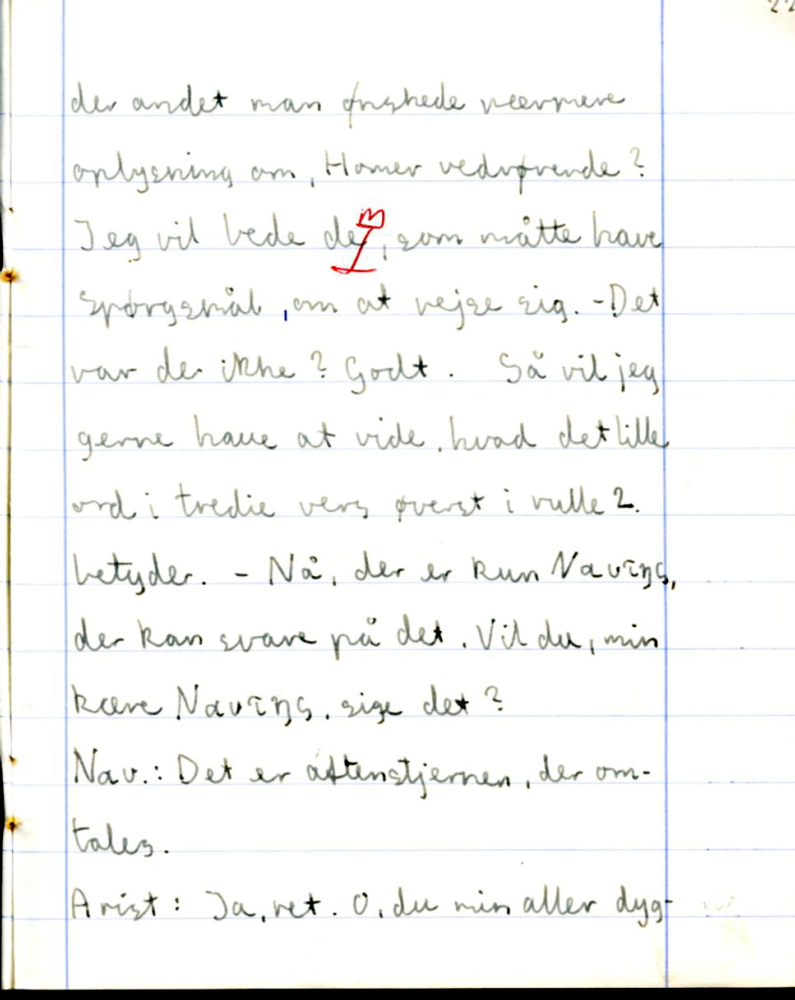 22
der andet man ønskede nærmere
oplysning om, Homer vedrørende?
Jeg vil bede dem, som måtte have
spørgsmål, om at rejse sig. - Det
var der ikke? Godt. Så vil jeg
gerne have at vide, hvad det lille
ord i tredie vers øverst i rulle 2.
betyder. - Nå, der er kun Ναύτης,
der kan svare på det. Vil du, min
kære Ναύτης, sige det?
Nav.: Det er aftenstjernen, der om-
tales.
Arist: Ja, ret. O, du min aller dyg-